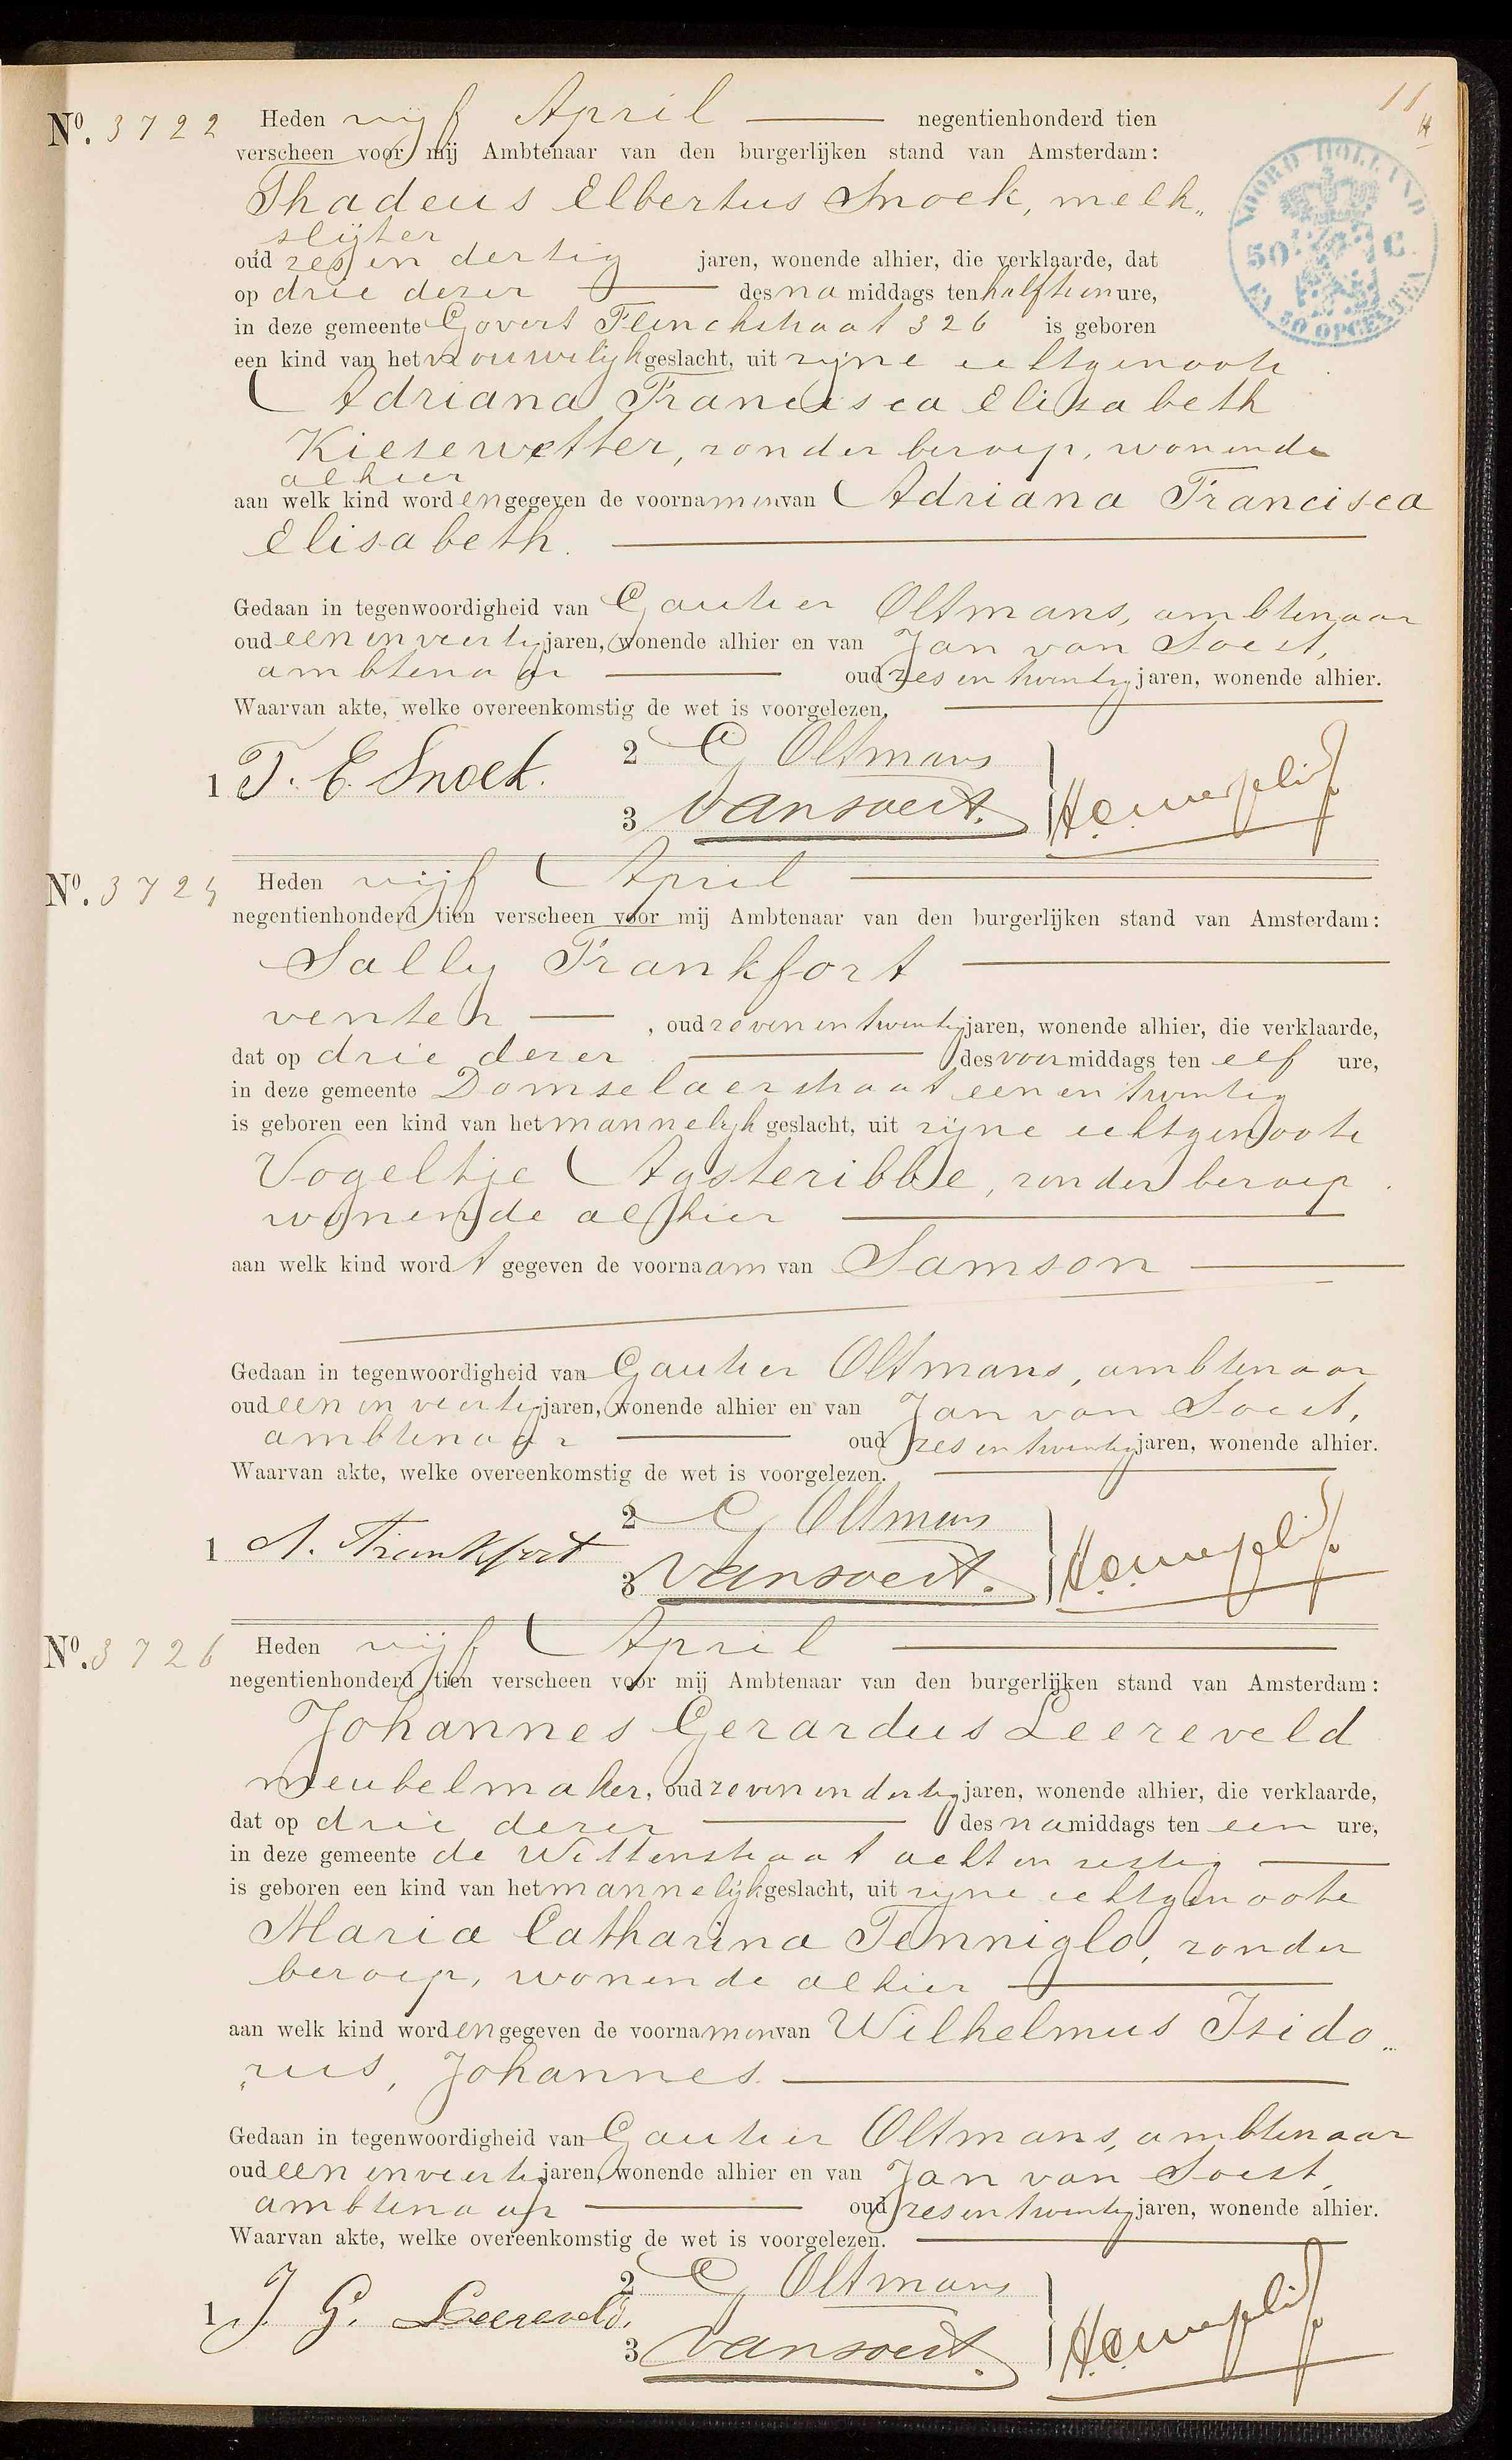 11
Nº. 3722 Heden vijf April negentienhonderd tien
verscheen voor mij Ambtenaar van den burgerlijken stand van Amsterdam:
Thadeus Elbertus Snoek, melk„
slijter
oud zes en dertig jaren, wonende alhier, die verklaarde, dat
op drie dezer des na middags ten half tien ure,
in deze gemeente Govert Flinckstraat 326 is geboren
een kind van het vrouwelijk geslacht, uit zijne echtgenoote
Adriana Francisca Elisabeth
Kiesewetter, zonder beroep, wonende
alhier
aan welk kind worden gegeven de voornamen van Adriana Francisca
Elisabeth.
NOORD HOLLAND
50 C.
EN 50 OPCENTEN
Gedaan in tegenwoordigheid van Gautier Oltmans, ambtenaar
oud een en veertig jaren, wonende alhier en van Jan van Soest,
ambtenaar oud zes en twintig jaren, wonende alhier.
Waarvan akte, welke overeenkomstig de wet is voorgelezen.
1 T. E. Snoek. 2 G Oltmans
3 van soest.
Nº. 3725 Heden vijf April
negentienhonderd tien verscheen voor mij Ambtenaar van den burgerlijken stand van Amsterdam:
Sally Frankfort
venter, oud zeven en twintig jaren, wonende alhier, die verklaarde,
dat op drie dezer des voormiddags ten elf ure,
in deze gemeente Domselaerstraat een en twintig
is geboren een kind van het mannelijk geslacht, uit zijne echtgenoote
Vogeltje Agsteribbe, zonder beroep
wonende alhier
aan welk kind wordt gegeven de voornaam van Samson
Gedaan in tegenwoordigheid van Gautier Oltmans, ambtenaar
oud een en veertig jaren, wonende alhier en van Jan van Soest,
ambtenaar oud zes en twintig jaren, wonende alhier.
Waarvan akte, welke overeenkomstig de wet is voorgelezen.
1 S. Frankfort 2 G Oltmans
3 van soest.
Nº. 3726 Heden vijf April
negentienhonderd tien verscheen voor mij Ambtenaar van den burgerlijken stand van Amsterdam:
Johannes Gerardus Leereveld
meubelmaker, oud zeven en dertig jaren, wonende alhier, die verklaarde,
dat op drie dezer des namiddags ten een ure,
in deze gemeente de Wittenstraat acht en zestig
is geboren een kind van het mannelijk geslacht, uit zijne echtgenoote
Maria Catharina Tenniglo, zonder
beroep, wonende alhier
aan welk kind worden gegeven de voornamen van Wilhelmus Isido„
„rus, Johannes.
Gedaan in tegenwoordigheid van Gautier Oltmans, ambtenaar
oud een en veertig jaren, wonende alhier en van Jan van Soest,
ambtenaar oud zes en twintig jaren, wonende alhier.
Waarvan akte, welke overeenkomstig de wet is voorgelezen.
1 J. G. Leereveld. 2 G Oltmans
3 van soest.